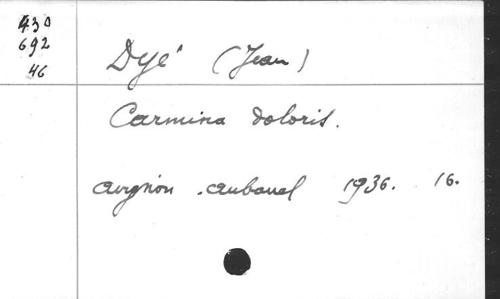 430
692
46
Dyé (Jean)
Carmina doloris.
Avignon. Aubanel 1936. 16.